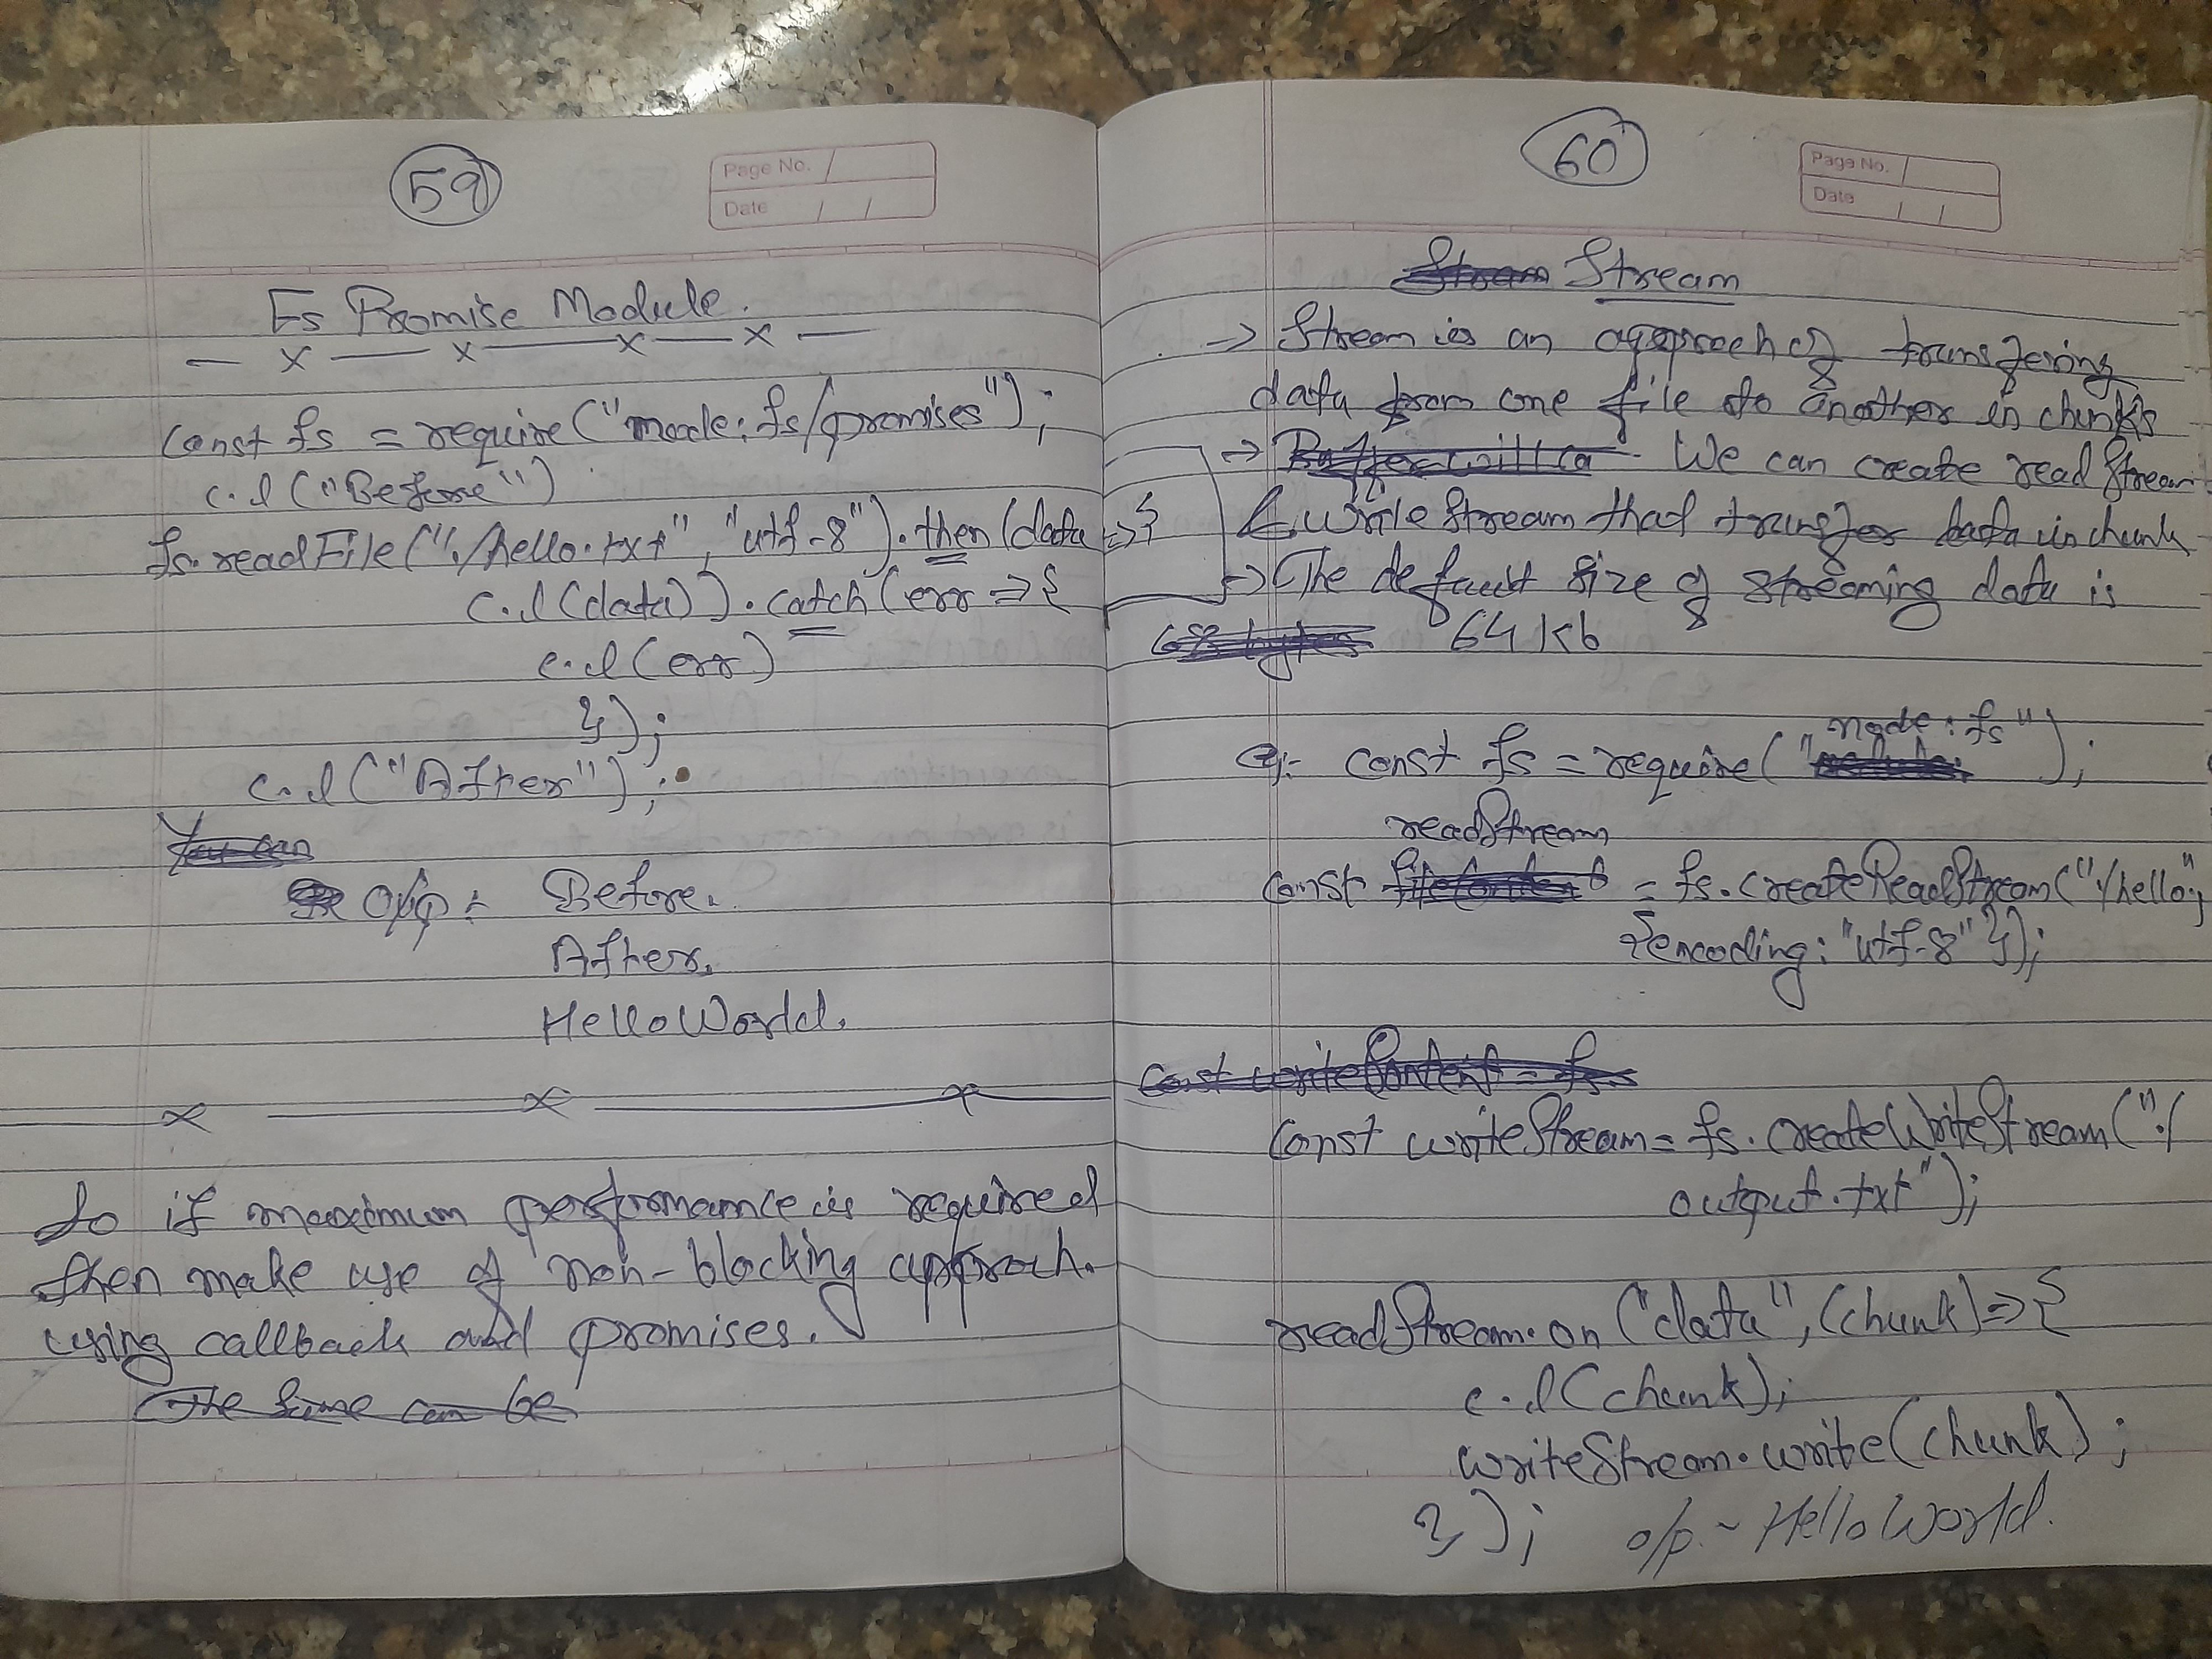 59
Page No.
Date / /
Fs Promise Module.
const fs = require("node:fs/promises");
c.l("Before")
fs.readFile("./hello.txt", "utf-8").then(data=>{
c.l(data)}).catch(err=>{
c.l(err)
});
c.l("After");
You can
O/p :- Before.
After.
HelloWorld.
So if maximum performance is required
then make use of non-blocking approach.
using callback and promises.
The same can be
60
Page No.
Date / /
Stream Stream
-> Stream is an approach of transfering
data from one file to another in chunks
-> Buffer will ca We can create readStream
& writeStream that transfer data in chunk
-> The default size of streaming data is
bytes 64 kb
eg:- const fs = require("node:fs");
readStream
const filecontent = fs.createReadStream("./hello",
{encoding: "utf-8"});
const writeContent = fs.
const writeStream = fs.createWriteStream("./
output.txt");
readStream.on("data", (chunk)=>{
c.l(chunk);
writeStream.write(chunk);
}); o/p.- HelloWorld.